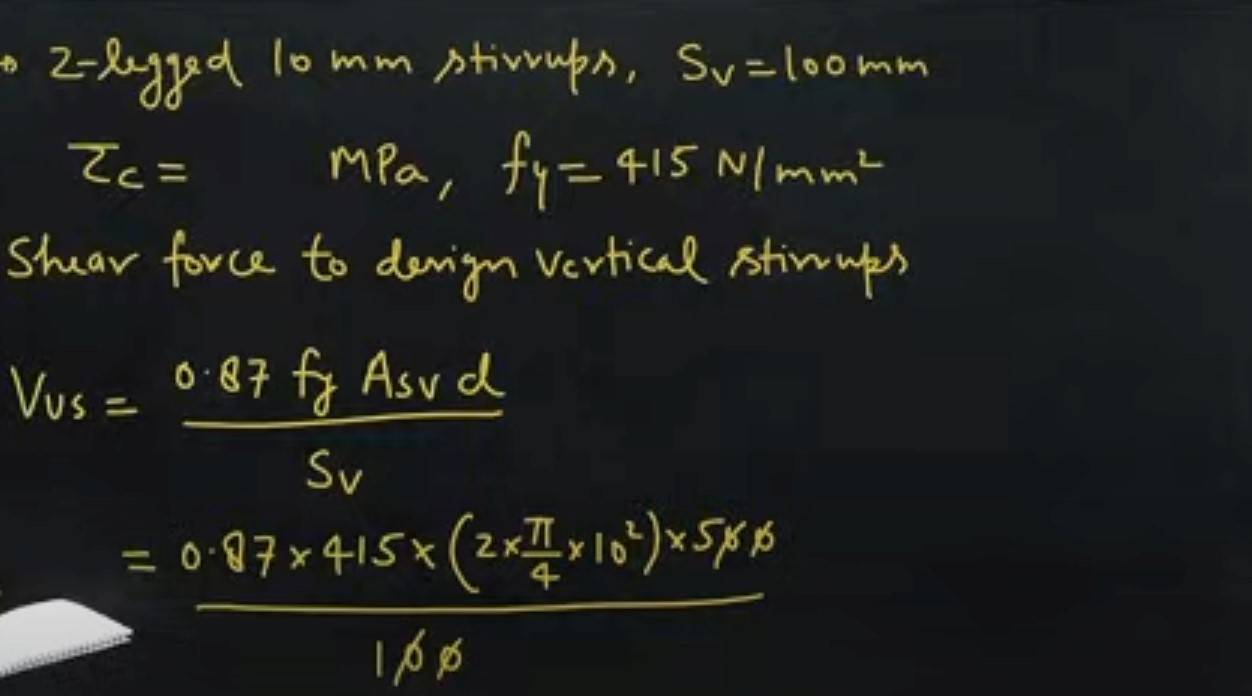 → 2-legged 10 mm stirrups, Sv = 100 mm
τc = MPa, fy = 415 N/mm²
Shear force to design vertical stirrups
Vus = 0.87 fy Asv d
Sv
= 0.87 × 415 × (2 × π/4 × 10²) × 500
100